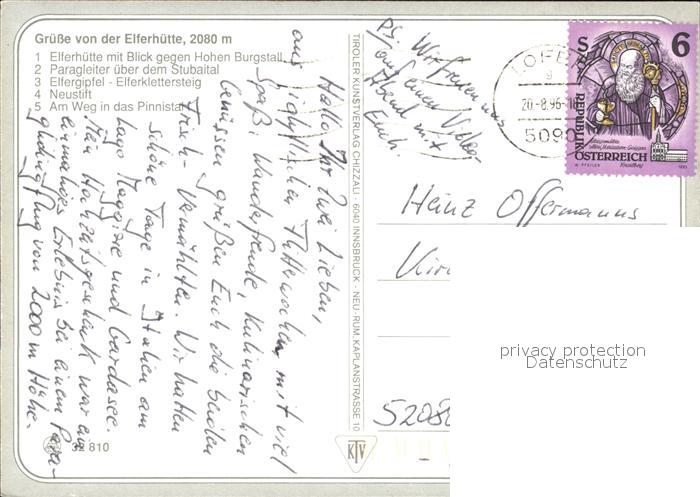 Grüße von der Elferhütte, 2080 m
1 Elferhütte mit Blick gegen Hohen Burgstall
2 Paragleiter über dem Stubaital
3 Elfergipfel - Elferklettersteig
4 Neustift
5 Am Weg in das Pinnistal
Hallo Ihr zwei Lieben,
aus idyllischen Flitterwochen mit viel
Spaß, Wanderfreude, Kulinarischen
Genüssen grüßen Euch die beiden
Frisch-Vermählten. Wir hatten
schöne Tage in Italien am
Lago Maggiore und Gardasee.
Mein Hochzeitsgeschenk war ein
einmaliges Erlebnis bei einem Para-
gleitflug von 2000 m Höhe.
PS. Wir freuen uns
auf einen Video
Abend mit
Euch.
TIROLER KUNSTVERLAG CHIZZALI - 6040 INNSBRUCK - NEU-RUM, KAPLANSTRASSE 10
KTV
32 810
LOFER
20.-8.96-18
5090
S 6
REPUBLIK
ÖSTERREICH
Heinz Offermanns
5208
privacy protection
Datenschutz